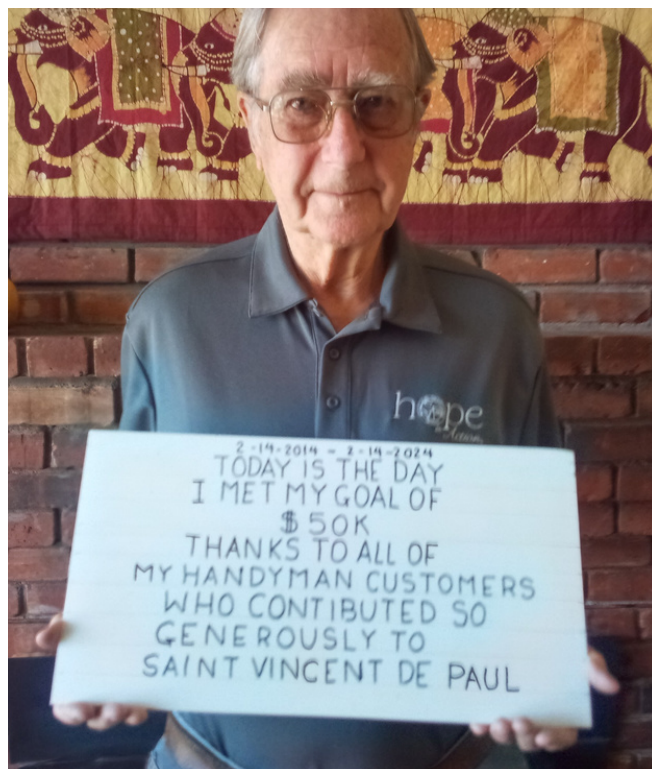 hope
in Action
2-14-2014 - 2-14-2024
TODAY IS THE DAY
I MET MY GOAL OF
$50K
THANKS TO ALL OF
MY HANDYMAN CUSTOMERS
WHO CONTIBUTED SO
GENEROUSLY TO
SAINT VINCENT DE PAUL